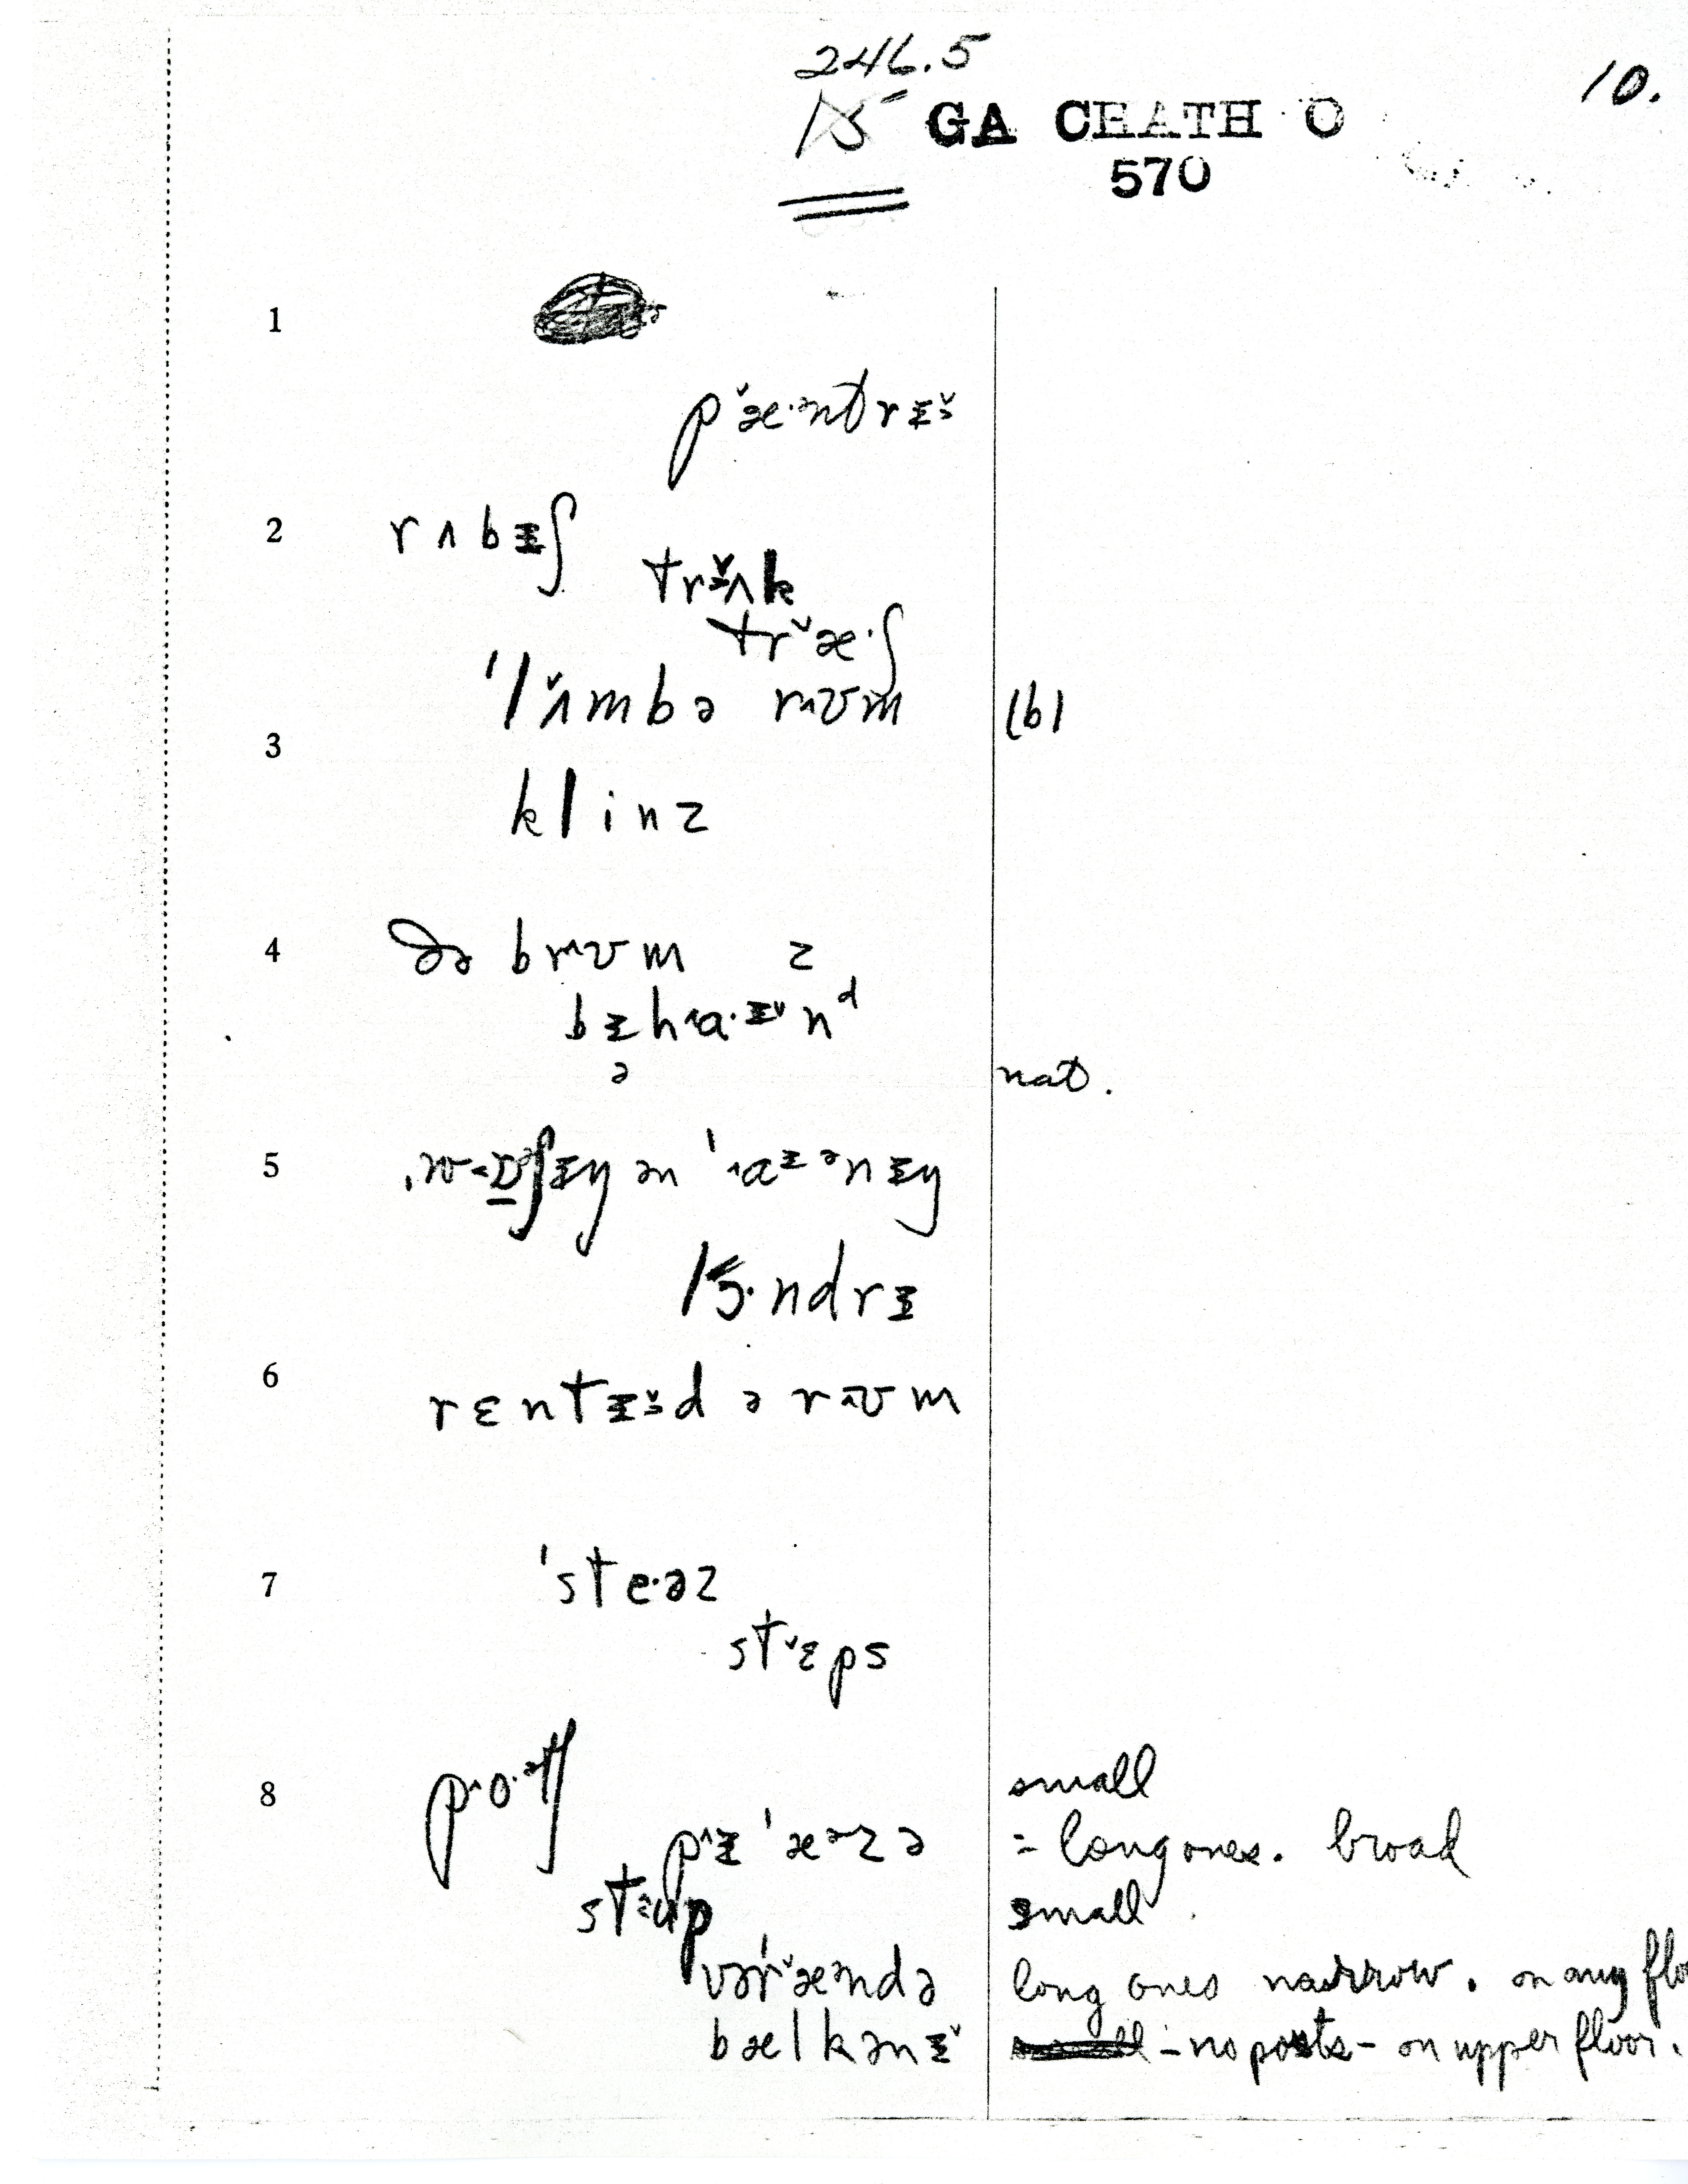 246.5
10.
15 GA CHATH O
570
1
p˅æ·ᵊntrɪ˅
2 rʌbɪʃ
trɜ˅ʌk
tr˅æ·ʃ
'lʌ˅mbə r^ʊm (b)
3
klinz
4 ðə br^ʊm z
bɪh^a·ɪ˅nᵈ
ə nat.
5
lɔ·ndrɪ
6 rɛntɪ˅d ə r^ʊm
7 'ste·əz
st˅ɛps
8 small
pɪ^'æᵊzə = long ones. broad
small
vər'˅æᵊndə long ones narrow. on any flo
bælkənɪ˅ - no posts - on upper floor.